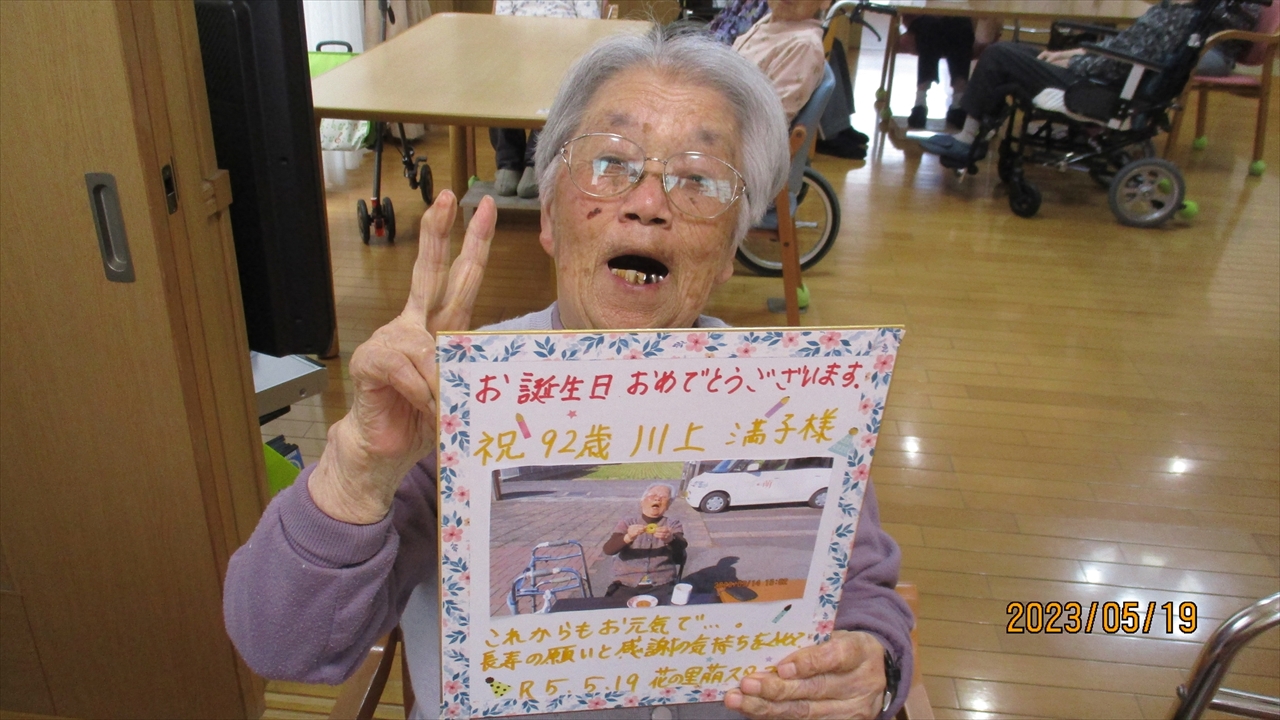 お誕生日おめでとうございます。
祝 92歳 川上 満子様
これからもお元気で…。
長寿の願いと感謝の気持ちをこめて
R5.5.19 花の里萌スタ
2023/05/19